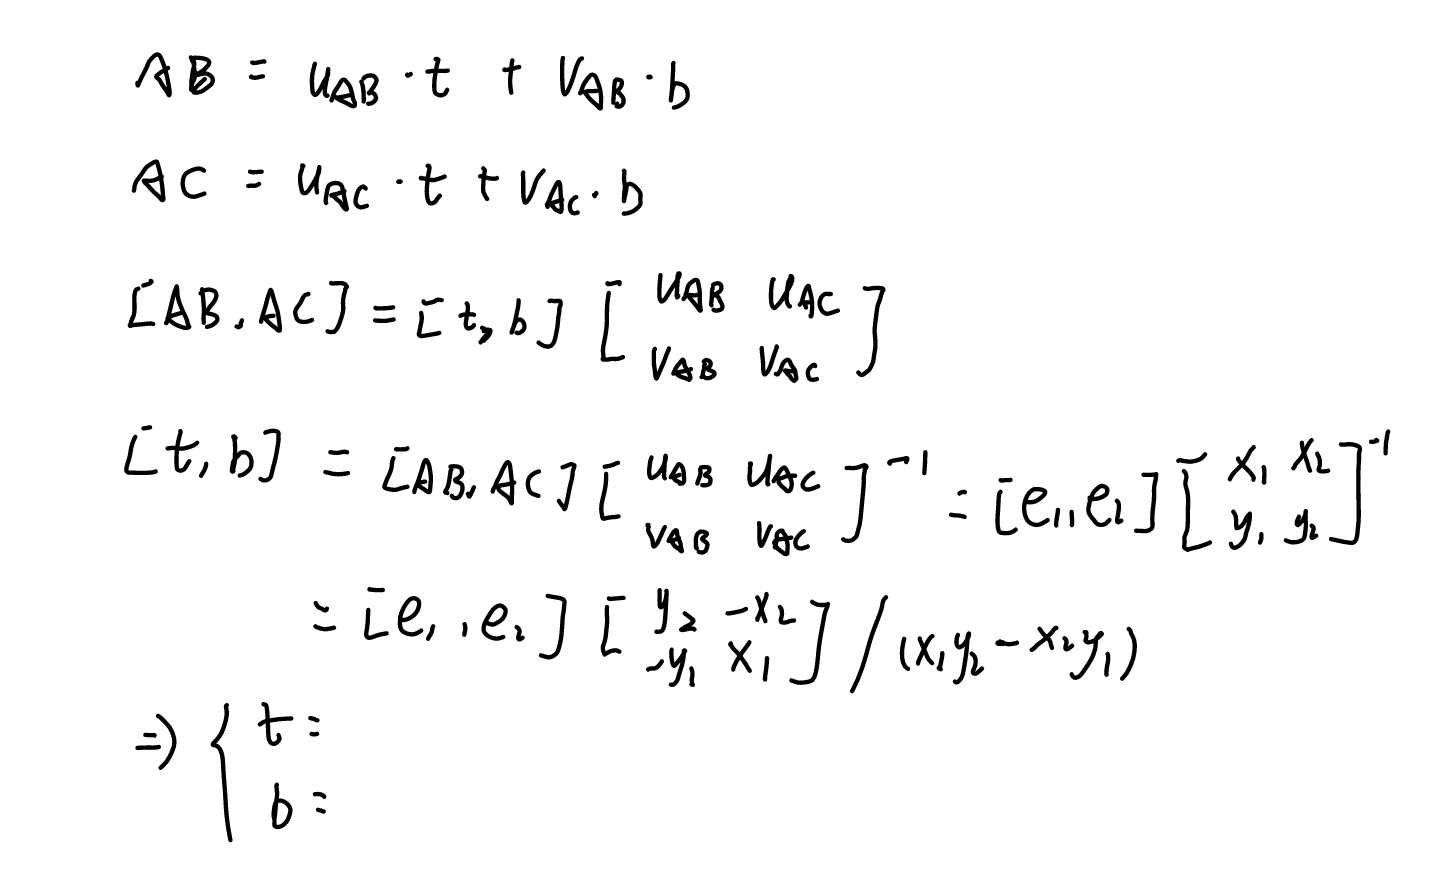 AB = u_{AB} · t + v_{AB} · b
AC = u_{AC} · t + v_{AC} · b
[AB, AC] = [t, b] \begin{bmatrix} u_{AB} & u_{AC} \\ v_{AB} & v_{AC} \end{bmatrix}
[t, b] = [AB, AC] \begin{bmatrix} u_{AB} & u_{AC} \\ v_{AB} & v_{AC} \end{bmatrix}^{-1} = [e_1, e_2] \begin{bmatrix} x_1 & x_2 \\ y_1 & y_2 \end{bmatrix}^{-1}
= [e_1, e_2] \begin{bmatrix} y_2 & -x_2 \\ -y_1 & x_1 \end{bmatrix} / (x_1 y_2 - x_2 y_1)
⇒ { t =
b =